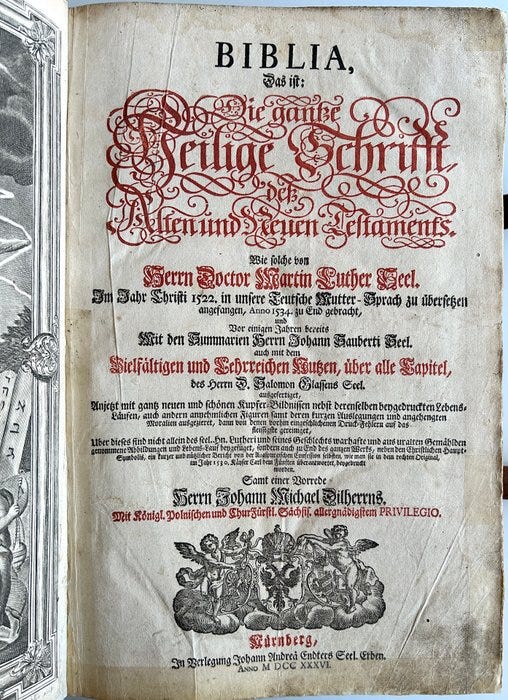 BIBLIA,
Das ist:
Die gantze
Heilige Schrifft,
deß
Alten und Neuen Testaments.
Wie solche von
Herrn Doctor Martin Luther Seel.
Im Jahr Christi 1522. in unsere Teutsche Mutter-Sprach zu übersetzen
angefangen, Anno 1534. zu End gebracht,
und
Vor einigen Jahren bereits
Mit den Summarien Herrn Johann Sauberti Seel.
auch mit dem
Vielfältigen und Lehrreichen Nutzen, über alle Capitel,
des Herrn D. Salomon Glassens Seel.
ausgefertiget,
Anjetzt mit gantz neuen und schönen Kupfer-Bildnissen nebst derenselben beygedruckten Lebens-
Läufen, auch andern annehmlichen Figuren samt deren kurtzen Auslegungen und angehengten
Moralien ausgezieret, dann von denen vorhin eingeschlichenen Druck-Fehlern auf das
fleissigste gereiniget,
Uber dieses sind nicht allein des seel. Hn. Lutheri und seines Geschlechts warhafte und aus uralten Gemählden
genommene Abbildungen und Lebens-Lauf beygefüget, sondern auch zu End des gantzen Werks, neben den Christlichen Haupt-
Symbolis, ein kurtzer und nützlicher Bericht von der Augspurgischen Confession selbsten, wie man sie in dem rechten Original,
im Jahr 1530. Käyser Carl dem Fünften überantwortet, beygedruckt
worden.
Samt einer Vorrede
Herrn Johann Michael Dilherrns.
Mit Königl. Polnischen und ChurFürstl. Sächsis. allergnädigstem PRIVILEGIO.
Nürnberg,
In Verlegung Johann Andreä Endters Seel. Erben.
ANNO M DCC XXXVI.